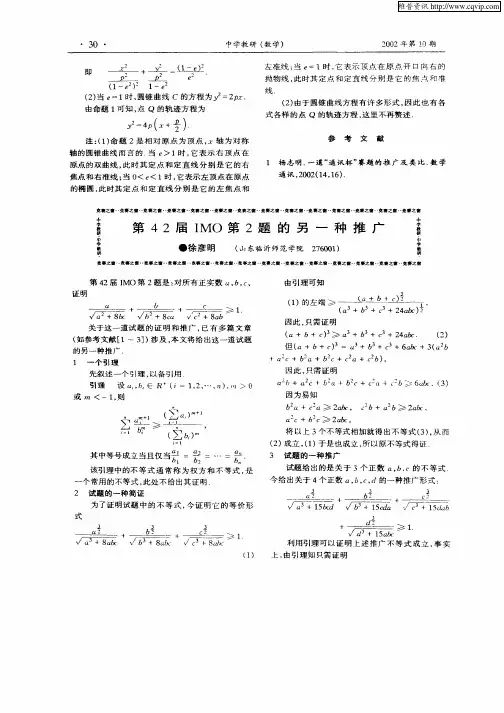 维普资讯 http://www.cqvip.com
· 30 ·
中学教研(数学)
2002 年第 10 期
即 x²/(p²/(1-e)²) + y²/(p²/(1-e²)) = (1-e)²/e².
(2)当 e=1 时,圆锥曲线 C 的方程为 y²=2px.
由命题1可知,点 Q 的轨迹方程为
y²=4p(x+p/2).
注:(1)命题 2 是相对原点为顶点,x 轴为对称
轴的圆锥曲线而言的.当 e>1 时,它表示右顶点在
原点的双曲线,此时其定点和定直线分别是它的右
焦点和右准线;当 0<e<1 时,它表示左顶点在原点
的椭圆,此时其定点和定直线分别是它的左焦点和
左准线;当 e=1 时,它表示顶点在原点开口向右的
抛物线,此时其定点和定直线分别是它的焦点和准
线.
(2)由于圆锥曲线方程有许多形式,因此也有各
式各样的点 Q 的轨迹方程,这里不再赘述.
参 考 文 献
1 杨志明.一道“通讯标”赛题的推广及类比.数学
通讯,2002(14,16).
第 42 届 IMO 第 2 题 的 另 一 种 推 广
●徐彦明 (山东临沂师范学院 276001)
第 42 届 IMO 第 2 题是:对所有正实数 a,b,c,
证明
a/√(a²+8bc) + b/√(b²+8ca) + c/√(c²+8ab) ≥1.
关于这一道试题的证明和推广,已有多篇文章
(如参考文献[1~3])涉及,本文将给出这一道试题
的另一种推广.
1 一个引理
先叙述一个引理,以备引用.
引理 设 aᵢ,bᵢ∈R⁺(i=1,2,…,n),m>0
或 m<-1,则
∑ᵢ₌₁ⁿ aᵢ^(m+1)/bᵢ^m ≥ (∑ᵢ₌₁ⁿ aᵢ)^(m+1)/(∑ᵢ₌₁ⁿ bᵢ)^m,
其中等号成立当且仅当 a₁/b₁ = a₂/b₂ = … = aₙ/bₙ.
该引理中的不等式通常称为权方和不等式,是
一个常用的不等式,此处不给出其证明.
2 试题的一种简证
为了证明试题中的不等式,今证明它的等价形
式
a^(3/2)/√(a³+8abc) + b^(3/2)/√(b³+8abc) + c^(3/2)/√(c³+8abc) ≥1.
(1)
由引理可知
(1)的左端≥ (a+b+c)^(3/2)/(a³+b³+c³+24abc)^(1/2),
因此,只需证明
(a+b+c)³≥a³+b³+c³+24abc. (2)
但(a+b+c)³=a³+b³+c³+6abc+3(a²b
+a²c+b²a+b²c+c²a+c²b),
因此,只需证明
a²b+a²c+b²a+b²c+c²a+c²b≥6abc.(3)
因为易知
b²a+c²a≥2abc, c²b+a²b≥2abc,
a²c+b²c≥2abc,
将以上 3 个不等式相加就得出不等式(3),从而
(2)成立,(1)于是也成立,所以原不等式得证.
3 试题的一种推广
试题给出的是关于 3 个正数 a,b,c 的不等式.
今给出关于 4 个正数 a,b,c,d 的一种推广形式:
a^(3/2)/√(a³+15bcd) + b^(3/2)/√(b³+15cda) + c^(3/2)/√(c³+15dab)
+ d^(3/2)/√(d³+15abc) ≥1.
利用引理可以证明上述推广不等式成立.事实
上,由引理知只需证明